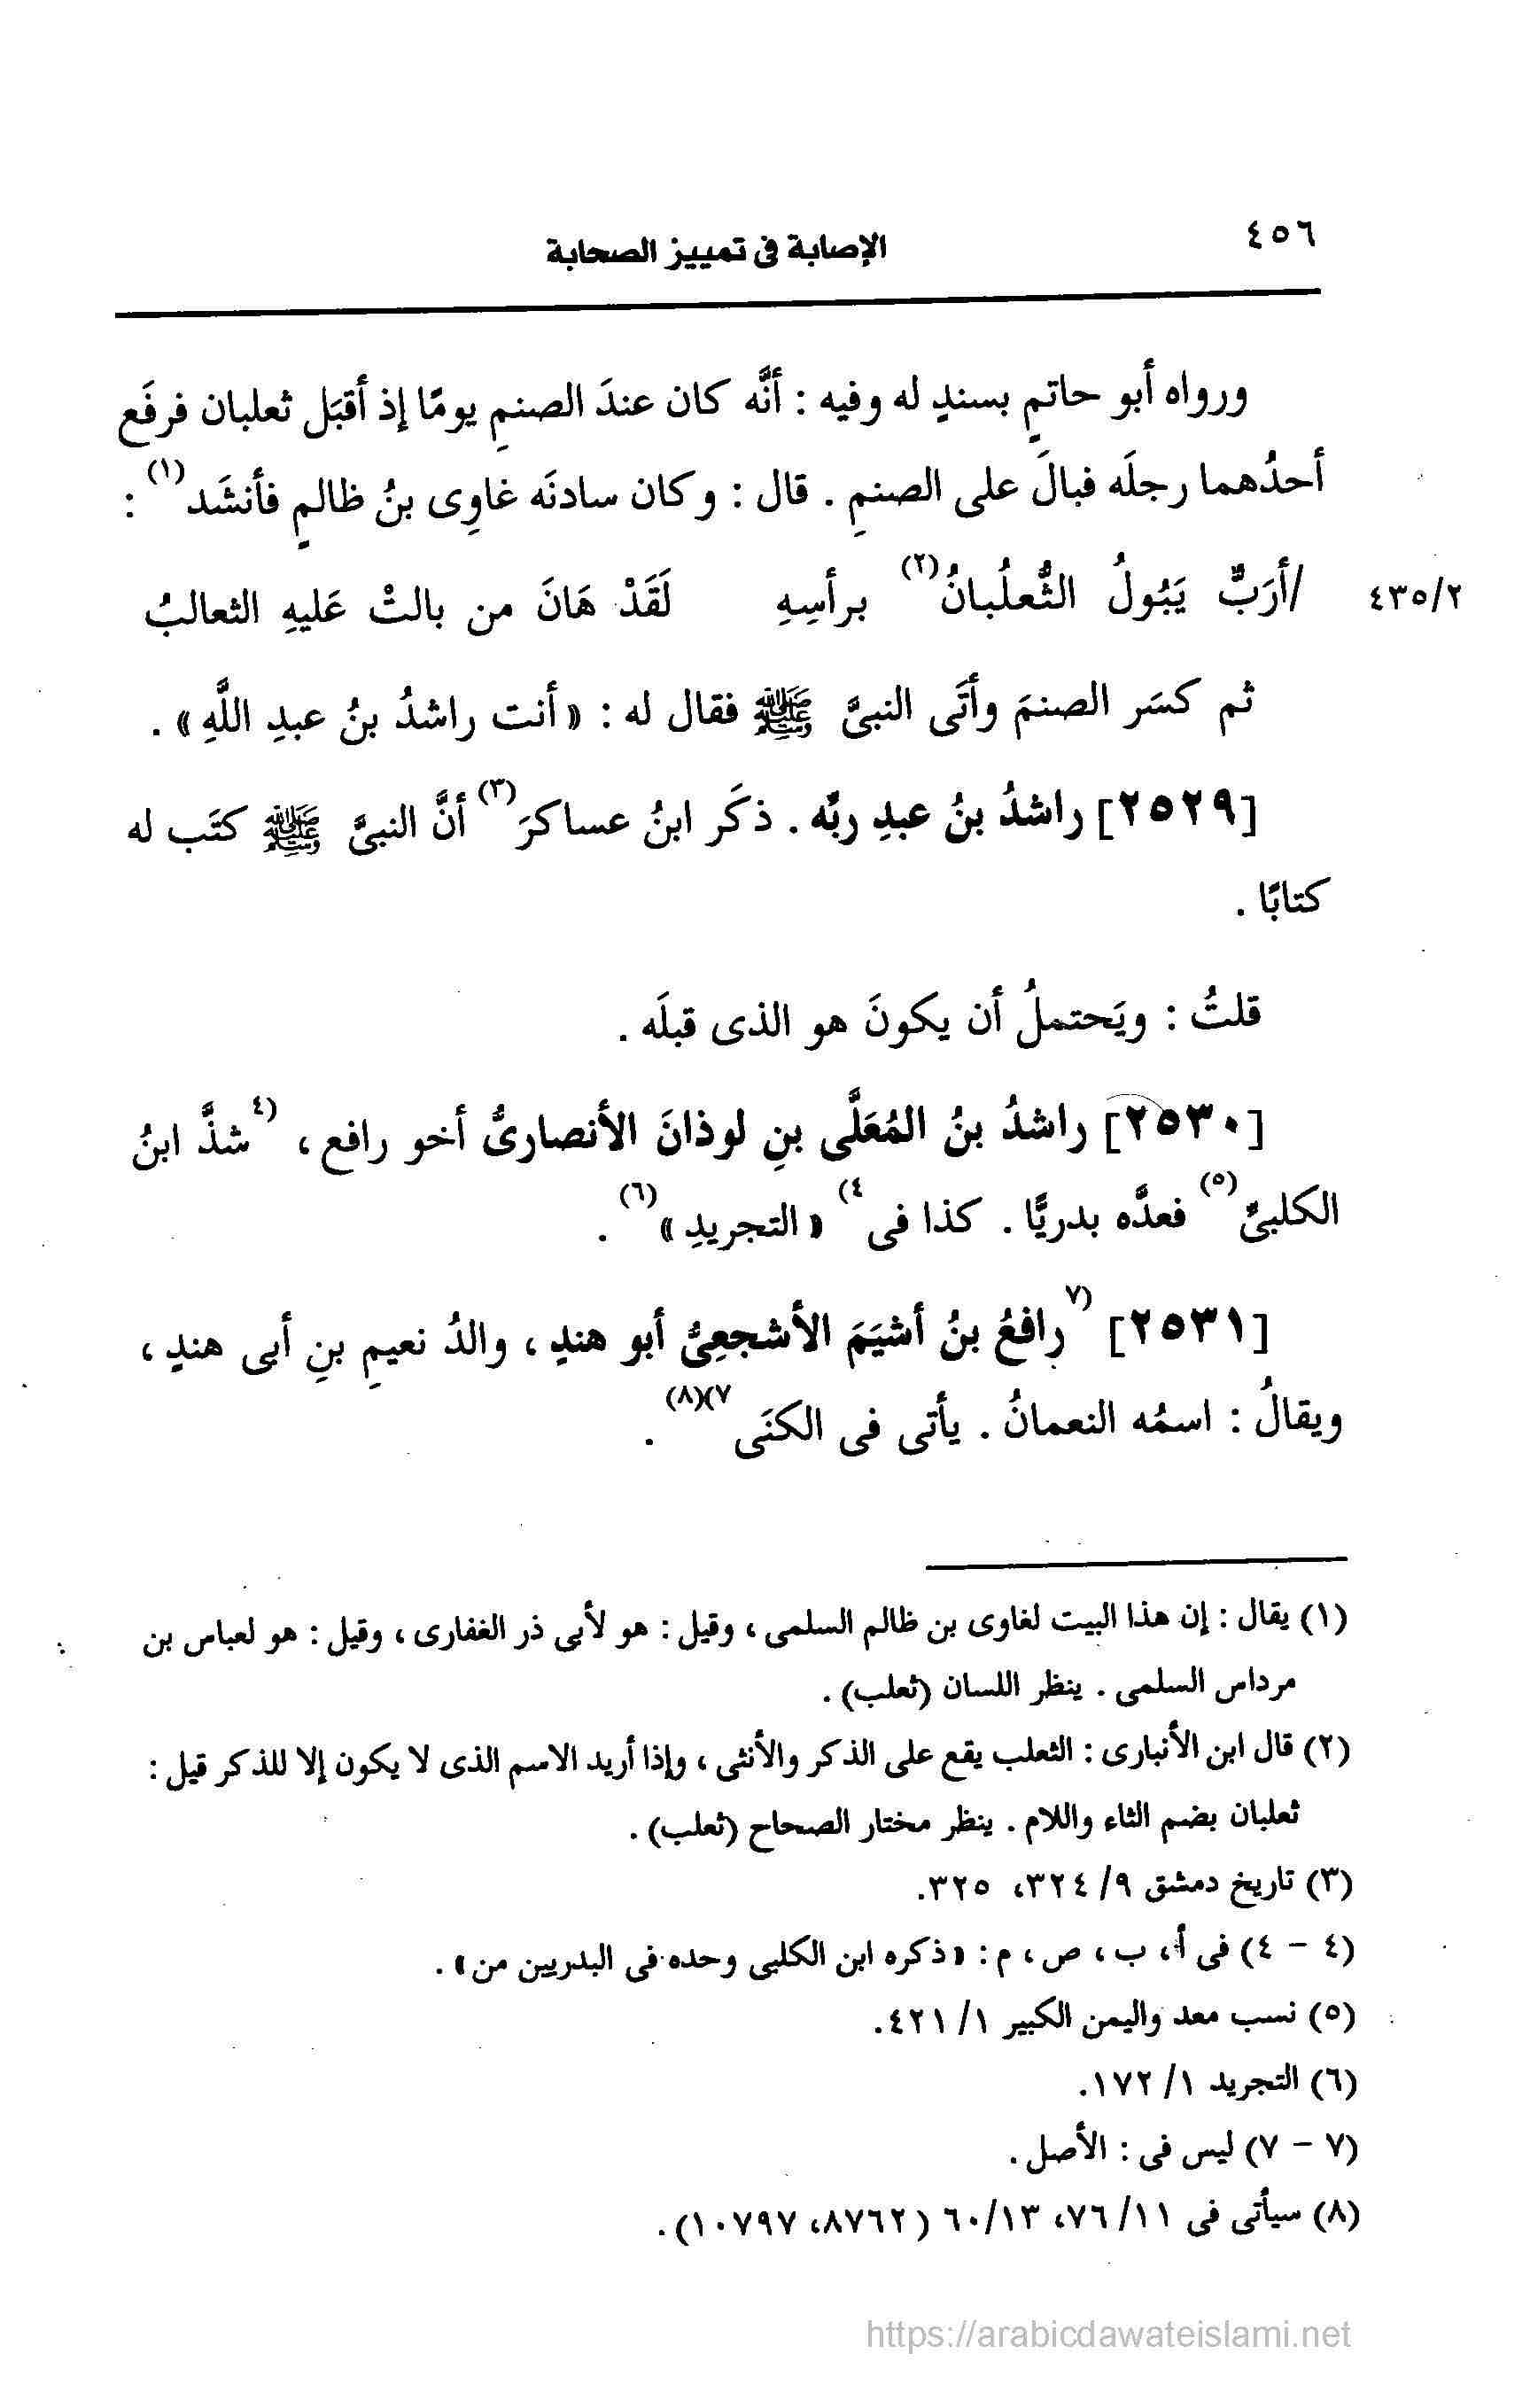 ٤٥٦
الإصابة فى تمييز الصحابة
ورواه أبو حاتمٍ بسندٍ له وفيه : أنَّه كان عندَ الصنمِ يومًا إذ أقبَل ثعلبان فرفَع
أحدُهما رجلَه فبالَ على الصنمِ . قال : وكان سادنَه غاوِى بنُ ظالمٍ فأنشَد(١) :
٤٣٥/٢ /أرَبٌّ يَبُولُ الثُّعلُبانُ(٢) برأسِهِ لَقَدْ هَانَ من بالتْ عَليهِ الثعالبُ
ثم كسَر الصنمَ وأتَى النبىَّ ﷺ فقال له : «أنت راشدُ بنُ عبدِ اللَّهِ» .
[٢٥٢٩] راشدُ بنُ عبدِ ربِّه . ذكَر ابنُ عساكرَ(٣) أنَّ النبىَّ ﷺ كتَب له
كتابًا .
قلتُ : ويَحتملُ أن يكونَ هو الذى قبلَه .
[٢٥٣٠] راشدُ بنُ المُعَلَّى بنِ لوذانَ الأنصارىُّ أخو رافع ، (٤شذَّ ابنُ
الكلبىِّ(٥) فعدَّه بدريًّا . كذا فى٤) «التجريدِ»(٦) .
[٢٥٣١] (٧رافعُ بنُ أشيَمَ الأشجعِىُّ أبو هندٍ ، والدُ نعيمِ بنِ أبى هندٍ ،
ويقالُ : اسمُه النعمانُ . يأتى فى الكنَى٧)(٨) .
(١) يقال : إن هذا البيت لغاوى بن ظالم السلمى ، وقيل : هو لأبى ذر الغفارى ، وقيل : هو لعباس بن
مرداس السلمى . ينظر اللسان (ثعلب) .
(٢) قال ابن الأنبارى : الثعلب يقع على الذكر والأنثى ، وإذا أريد الاسم الذى لا يكون إلا للذكر قيل :
ثعلبان بضم الثاء واللام . ينظر مختار الصحاح (ثعلب) .
(٣) تاريخ دمشق ٩/ ٣٢٤، ٣٢٥.
(٤ - ٤) فى أ، ب ، ص ، م : «ذكره ابن الكلبى وحده فى البدريين من» .
(٥) نسب معد واليمن الكبير ١/ ٤٢١.
(٦) التجريد ١/ ١٧٢.
(٧ - ٧) ليس فى : الأصل .
(٨) سيأتى فى ١١/ ٧٦، ٦٠/١٣ (٨٧٦٢، ١٠٧٩٧) .
https://arabicdawateislami.net